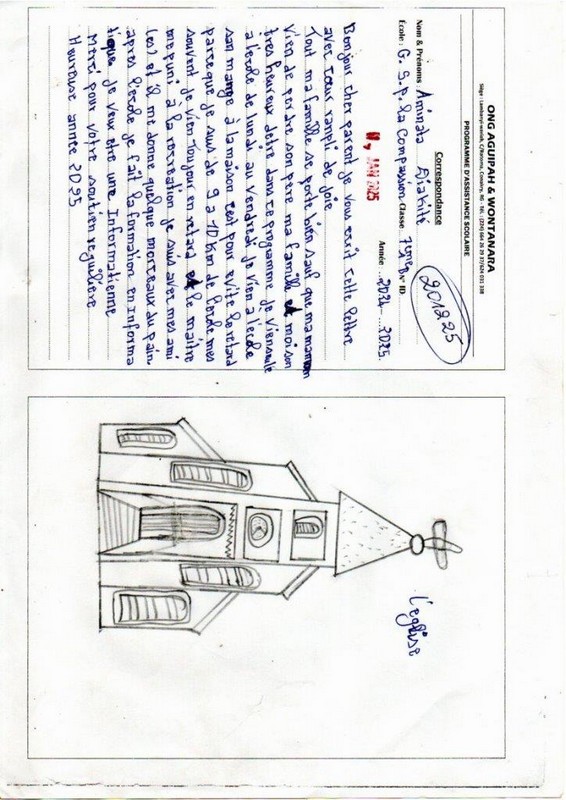 ONG AGUIPAH & WONTANARA
Siège : Lambanyi-waniah, C/Ratoma, Conakry, RG - TEL : (224) 664 26 29 37/624 031 338
PROGRAMME D'ASSISTANCE SCOLAIRE
Correspondance
201225
Nom & Prénoms Aminata Diakité
École : G. S. P. La Compassion Classe 7eme Bv° ID
Année 2024-2025.
JAN 2025
Bonjour cher parent je vous ecrit cette lettre
avec cœur rampli de joie
Tout ma famille se porte bien sauf que ma maman
vien de perdre son pere ma famille et moi son
tres heureux detre dans ce progamme je vien seule
a l'ecole de lundi au vendredi je vien a l'ecole
san mangé à la maison cest pour evité le retard
parceque je suis de 9 a 10 km de l'ecole mes
souvent je vien toujour en retard et le maitre
me puni à la recreation je suis avec mes ami
(es) et il me donne quelque morceaux du pain.
apres l'école je fait la formation en Informa
tique je veux etre une Informatienne
Merci pour votre soutien regulière
Heureuse année 2025
L'eglise